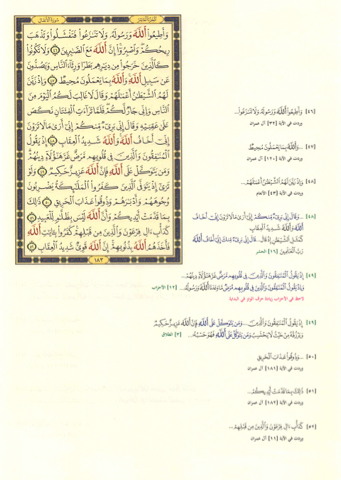 وَأَطِيعُوا اللَّهَ وَرَسُولَهُ وَلَا تَنَازَعُوا فَتَفْشَلُوا وَتَذْهَبَ
رِيحُكُمْ وَاصْبِرُوا إِنَّ اللَّهَ مَعَ الصَّابِرِينَ ٤٦ وَلَا تَكُونُوا
كَالَّذِينَ خَرَجُوا مِن دِيَارِهِم بَطَرًا وَرِئَاءَ النَّاسِ وَيَصُدُّونَ
عَن سَبِيلِ اللَّهِ وَاللَّهُ بِمَا يَعْمَلُونَ مُحِيطٌ ٤٧ وَإِذْ زَيَّنَ
لَهُمُ الشَّيْطَانُ أَعْمَالَهُمْ وَقَالَ لَا غَالِبَ لَكُمُ الْيَوْمَ مِنَ
النَّاسِ وَإِنِّي جَارٌ لَّكُمْ فَلَمَّا تَرَاءَتِ الْفِئَتَانِ نَكَصَ
عَلَى عَقِبَيْهِ وَقَالَ إِنِّي بَرِيءٌ مِّنكُمْ إِنِّي أَرَى مَا لَا تَرَوْنَ
إِنِّي أَخَافُ اللَّهَ وَاللَّهُ شَدِيدُ الْعِقَابِ ٤٨ إِذْ يَقُولُ
الْمُنَافِقُونَ وَالَّذِينَ فِي قُلُوبِهِم مَّرَضٌ غَرَّ هَؤُلَاءِ دِينُهُمْ
وَمَن يَتَوَكَّلْ عَلَى اللَّهِ فَإِنَّ اللَّهَ عَزِيزٌ حَكِيمٌ ٤٩ وَلَوْ
تَرَى إِذْ يَتَوَفَّى الَّذِينَ كَفَرُوا الْمَلَائِكَةُ يَضْرِبُونَ
وُجُوهَهُمْ وَأَدْبَارَهُمْ وَذُوقُوا عَذَابَ الْحَرِيقِ ٥٠ ذَلِكَ
بِمَا قَدَّمَتْ أَيْدِيكُمْ وَأَنَّ اللَّهَ لَيْسَ بِظَلَّامٍ لِّلْعَبِيدِ ٥١
كَدَأْبِ آلِ فِرْعَوْنَ وَالَّذِينَ مِن قَبْلِهِمْ كَفَرُوا بِآيَاتِ اللَّهِ
فَأَخَذَهُمُ اللَّهُ بِذُنُوبِهِمْ إِنَّ اللَّهَ قَوِيٌّ شَدِيدُ الْعِقَابِ ٥٢
١٨٣
[٤٦] وَأَطِيعُوا اللَّهَ وَرَسُولَهُ وَلَا تَنَازَعُوا...
[٤٧] ...وَاللَّهُ بِمَا يَعْمَلُونَ مُحِيطٌ
وردت في الآية [١٢٠] آل عمران
[٤٨] وَإِذْ زَيَّنَ لَهُمُ الشَّيْطَانُ أَعْمَالَهُمْ...
وردت في الآية [٤٣] الأنعام
[٤٨] ...وَقَالَ إِنِّي بَرِيءٌ مِّنكُمْ إِنِّي أَرَى مَا لَا تَرَوْنَ إِنِّي أَخَافُ
اللَّهَ وَاللَّهُ شَدِيدُ الْعِقَابِ
كَمَثَلِ الشَّيْطَانِ إِذْ قَالَ... قَالَ إِنِّي بَرِيءٌ مِّنكَ إِنِّي أَخَافُ اللَّهَ
رَبَّ الْعَالَمِينَ [١٦] الحشر
[٤٩] إِذْ يَقُولُ الْمُنَافِقُونَ وَالَّذِينَ فِي قُلُوبِهِم مَّرَضٌ غَرَّ هَؤُلَاءِ دِينُهُمْ...
وَإِذْ يَقُولُ الْمُنَافِقُونَ وَالَّذِينَ فِي قُلُوبِهِم مَّرَضٌ مَّا وَعَدَنَا اللَّهُ وَرَسُولُهُ... [١٢] الأحزاب
[٤٩] إِذْ يَقُولُ الْمُنَافِقُونَ وَالَّذِينَ... وَمَن يَتَوَكَّلْ عَلَى اللَّهِ فَإِنَّ اللَّهَ عَزِيزٌ حَكِيمٌ
وَيَرْزُقْهُ مِنْ حَيْثُ لَا يَحْتَسِبُ وَمَن يَتَوَكَّلْ عَلَى اللَّهِ فَهُوَ حَسْبُهُ... [٣] الطلاق
[٥٠] ...وَذُوقُوا عَذَابَ الْحَرِيقِ
وردت في الآية [١٨١] آل عمران
[٥١] ذَلِكَ بِمَا قَدَّمَتْ أَيْدِيكُمْ...
وردت في الآية [١٨٢] آل عمران
[٥٢] كَدَأْبِ آلِ فِرْعَوْنَ وَالَّذِينَ مِن قَبْلِهِمْ...
وردت في الآية [١١] آل عمران